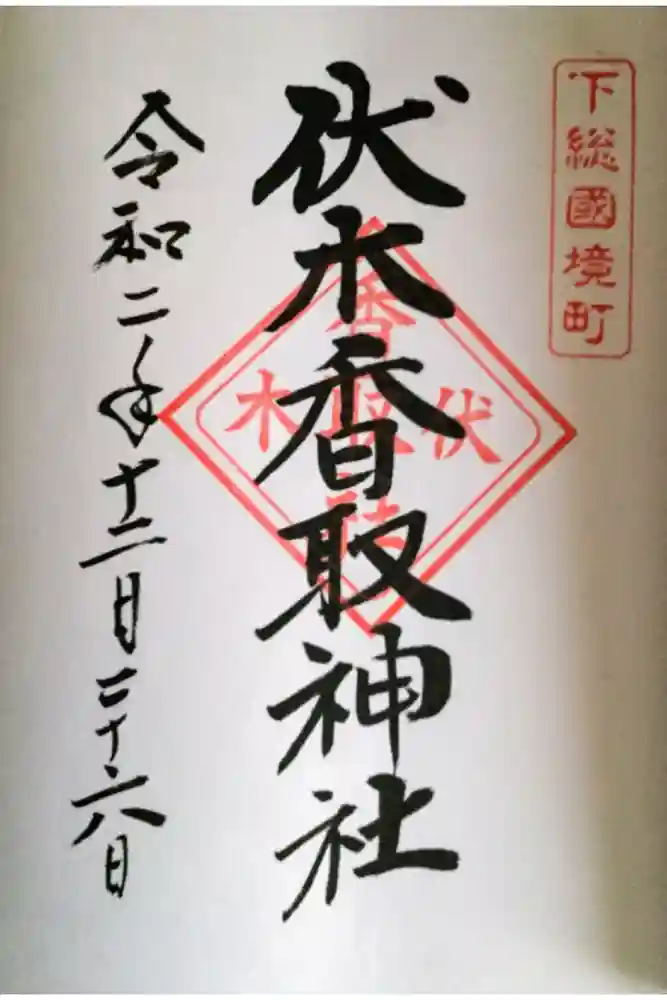 下総國境町
伏木香取神社
令和二年十二月二十六日
香取
伏木